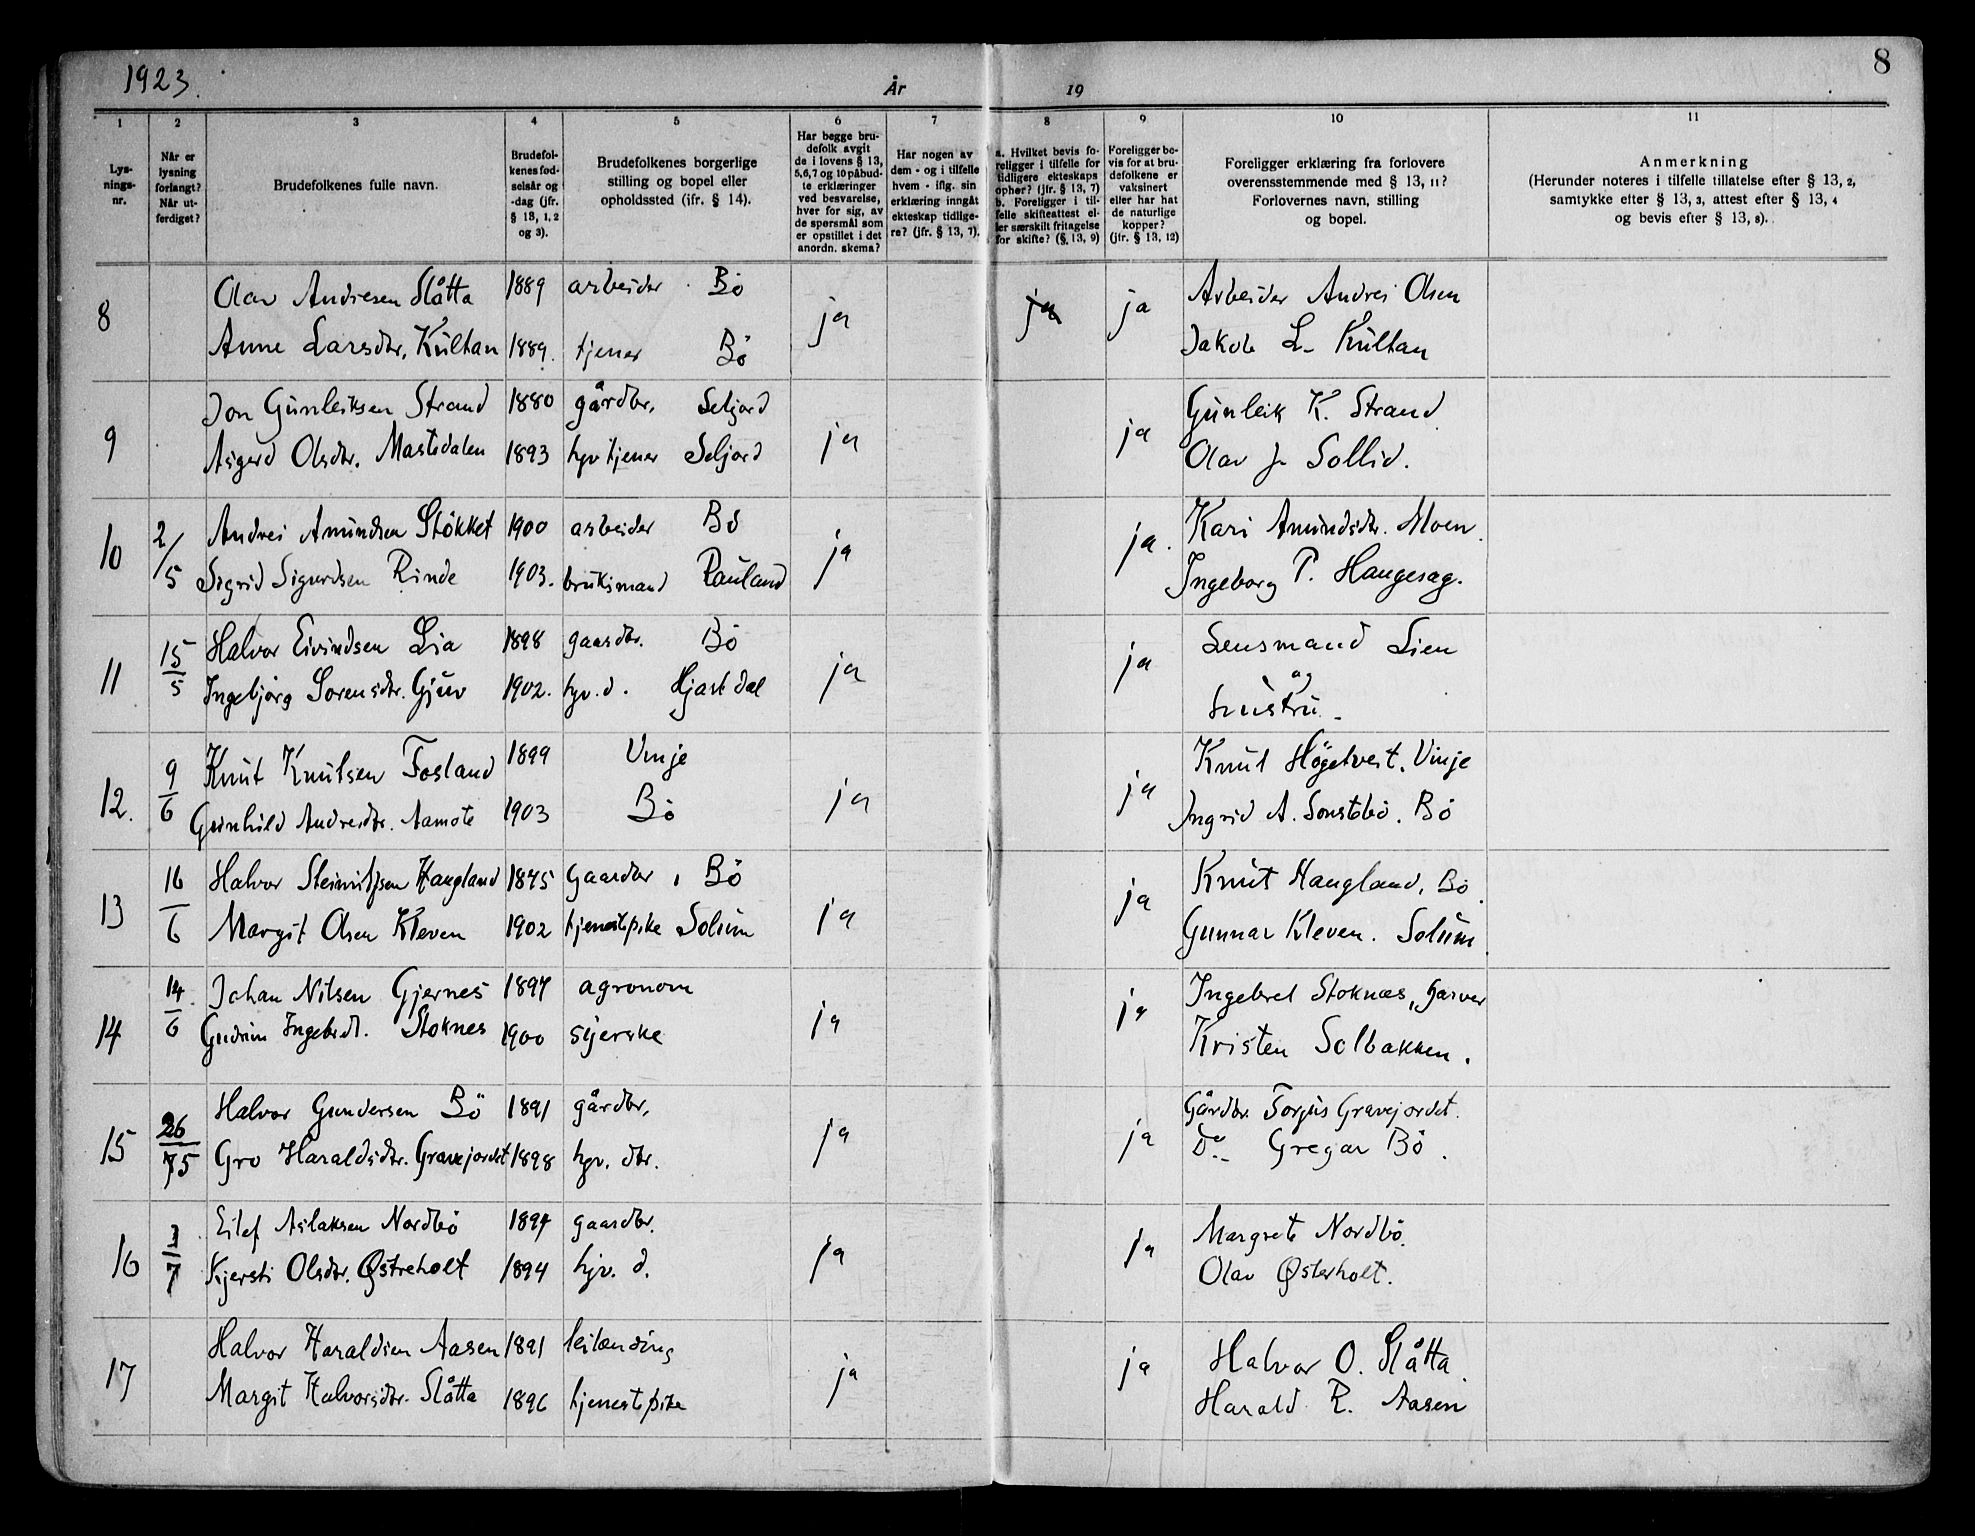 1923.
År
19
8
1
2
3
4
5
6
7
8
9
10
11
Lys-
nings-
nr.
Når er
lysning
forlangt?
Når ut-
ferdiget?
Brudefolkenes fulle navn.
Brudefol-
kenes fød-
selsår og
-dag (jfr.
§ 13, 1, 2
og 3).
Brudefolkenes borgerlige
stilling og bopel eller
opholdssted (jfr. § 14).
Har begge bru-
defolk avgit
de i lovens § 13,
5,6,7 og 10 påbud-
te erklæringer
ved besvarelse,
hver for sig, av
de spørsmål som
er opstillet i det
anordn. skema?
Har nogen av
dem - og i tilfelle
hvem - iflg. sin
erklæring inngåt
ekteskap tidlige-
re? (jfr. § 13, 7).
a. Hvilket bevis fo-
religger i tilfelle for
tidligere ekteskaps
ophør? (jfr. § 13, 7)
b. Foreligger i til-
felle skifteattest el-
ler særskilt fritagelse
for skifte? (§ 13, 9)
Foreligger be-
vis for at bru-
defolkene er
vaksinert
eller har hat
de naturlige
kopper?
(jfr. § 13, 12)
Foreligger erklæring fra forlovere
overensstemmende med § 13, 11?
Forlovernes navn, stilling
og bopel.
Anmerkning
(Herunder noteres i tilfelle tillatelse efter § 13, 2,
samtykke efter § 13, 3, attest efter § 13, 4
og bevis efter § 13, 8).
8 Olav Andresen Slåtta 1889 arbeider Bö ja ja ja Arbeider Andres Olsen
Anne Larsdtr. Kultan 1889. tjener Bö Jakob L. Kultan
9 Jon Gunleiksen Strand 1880 gårdbr. Seljord ja ja Gunleik K. Strand
Asgerd Olsdtr. Mastedalen 1893 hjv tjener Seljord Olav J. Sollid.
10 2/5 Andres Amundsen Stökket 1900 arbeider Bö ja ja. Kari Amundsdtr. Moen
Sigrid Sigurdsen Rinde 1903. bruksmand Rauland Ingeborg P. Haugesag.
11 15/5 Halvor Eivindsen Lia 1898 gaardbr. Bö ja ja Lensmand Lien
og
Ingebjörg Sorensdtr. Gjuv 1902. hjv. d. Hjartdal hustru.
12. 9/6 Knut Knutsen Fosland 1899 Vinje ja ja Knut Högetveit. Vinje
Gunhild Andresdtr. Aamote 1903 Bö Ingrid A. Sonstebö. Bö
13 16/6 Halvor Steinulfsen Haugland 1875 Gaardbr. Bö ja ja Knut Haugland, Bö
Margit Olsen Kleven 1902 tjenestpike Solum Gunnar Kleven. Solum
14 14/6 Johan Nilsen Gjernes 1897 agronom ja ja Ingebret Stoknæs, Garver
Gudrun Ingebrdt. Stoknes 1900 syerske Kristen Solbakken.
15 26/75 Halvor Gundersen Bö 1891 gårdbr. ja ja Gårdbr. Torjus Gravejordet.
Gro Haraldsdtr. Gravejordet 1898 hjv. dtr. Do Gregar Bö.
16 1/7 Eilef Aslaksen Nordbö 1894 gaardbr. ja ja Margrete Nordbö.
Kjersti Olsdtr. Østreholt 1894 hjv. d. Olav Østerholt.
17 Halvor Haraldsen Aasen 1891 leilænding ja ja Halvor O. Slåtta
Margit Halvorsdtr. Slåtta 1896 tjenestpike Harald R. Aasen